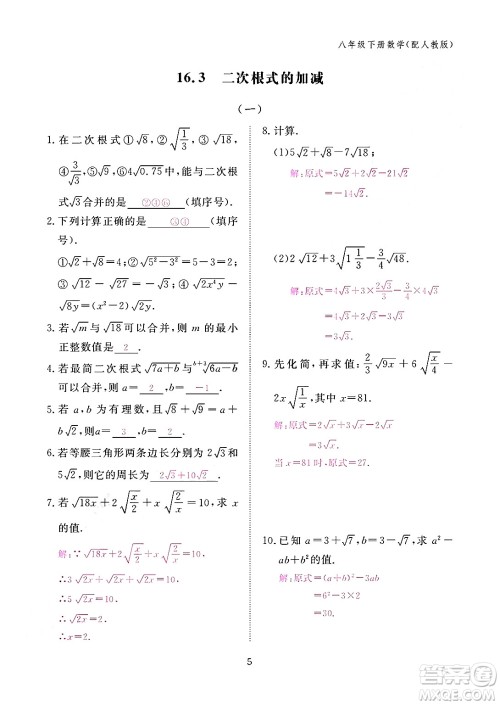 八年级下册数学(配人教版)
16.3 二次根式的加减
(一)
1. 在二次根式①√8, ②√(1/3), ③√18,
④3/√3, ⑤4√0.75, ⑥√12中, 能与二次根
式√3合并的是 (填序号).
2. 下列计算正确的是 (填序
号).
①√2+√6=√8; ②√(5²-3²)=5-3=2;
③√12-√27=-√3;
√8y=(x²-2)
3. 若√m与√18可以合并, 则m的最小
正整数值是 2 .
4. 若最简二次根式√(7a+b)与 ᵇ⁺³√(6a-b)
可以合并, 则a= 2 , b= -1 .
5. 若a, b为有理数, 且√8+√9+√2=a+
b√2, 则a= 3
6. 若等腰三角形两条边长分别为2√3和
5√2, 则它的周长为 2√3+10√2 .
7. 若√18x+2√(x/2)+x√(2/x)=10, 求x
的值.
解:∵√18x+2√(x/2)+x√(2/x)=10,
∴3√2x+√2x+√2x=10.
∴5√2x=10.
∴√2x=2.
∴2x=4.
∴x=2.
8. 计算.
(1)5√2+√8-7√18;
解:原式=5√2+2√2-21√2
=-14√2.
(2)2√12+3√(1⅓)-3/4√48.
=4√3
9. 先化简, 再求值: 2/3√9x+6√(x/4)-
2x√(1/x), 其中x=81.
解:原式=2√x+3√x-2√x
=3√x.
当x=81时,原式=27.
10. 已知a=3-√7, b=3+√7, 求a²-
ab+b²的值.
解:原式=(a+b)²-3ab
=6²-3×2
=30.
5